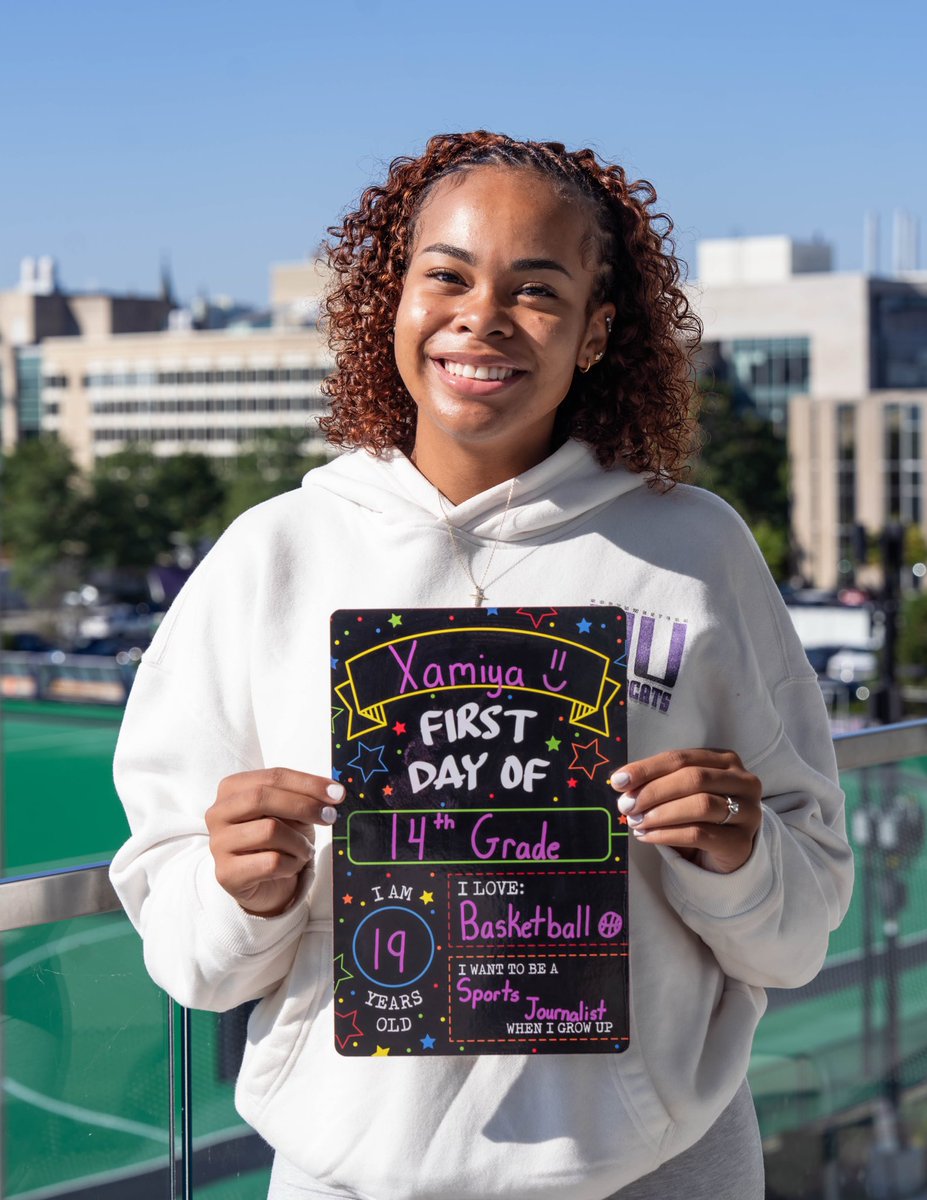 Xamiya
FIRST
DAY OF
14th Grade
I AM
19
YEARS
OLD
I LOVE:
Basketball
I WANT TO BE A
Sports
Journalist
WHEN I GROW UP